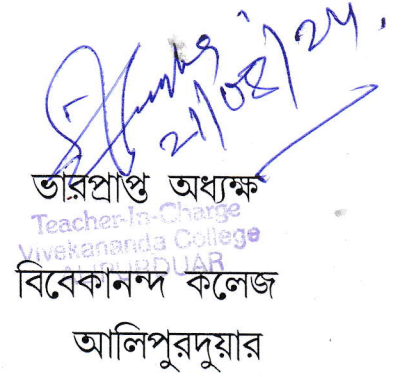 21/08/24.
ভারপ্রাপ্ত অধ্যক্ষ
Teacher-In-Charge
Vivekananda College
ALIPURDUAR
বিবেকানন্দ কলেজ
আলিপুরদুয়ার